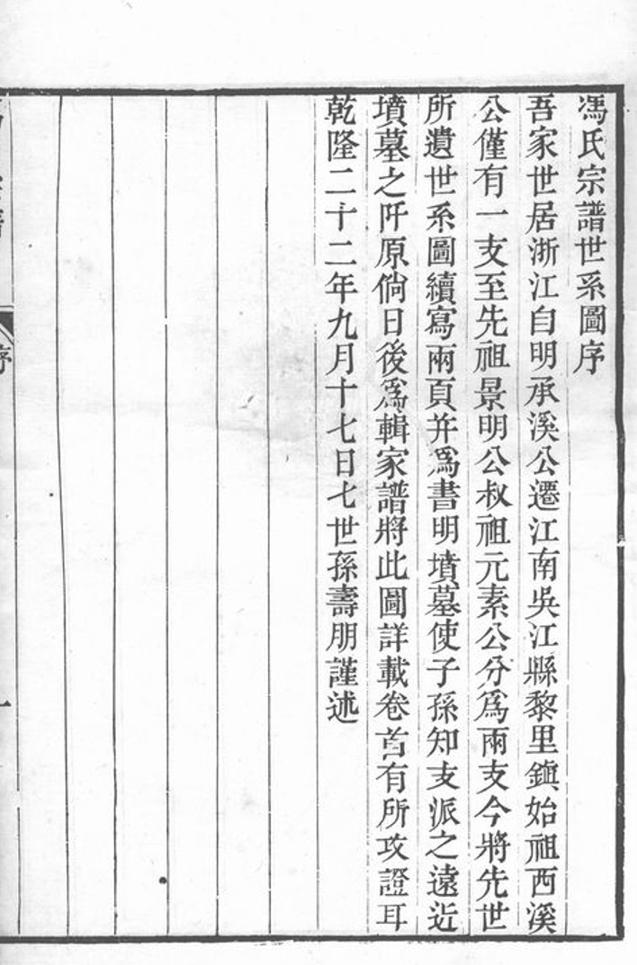 馮氏宗譜世系圖序
吾家世居浙江自明承溪公遷江南吳江縣黎里鎭始祖西溪
公僅有一支至先祖景明公叔祖元素公分爲兩支今將先世
所遺世系圖續寫兩頁并爲書明墳墓使子孫知支派之遠近
墳墓之阡原倘日後爲輯家譜將此圖詳載卷首有所攷證耳
乾隆二十二年九月十七日七世孫壽朋謹述
序
一